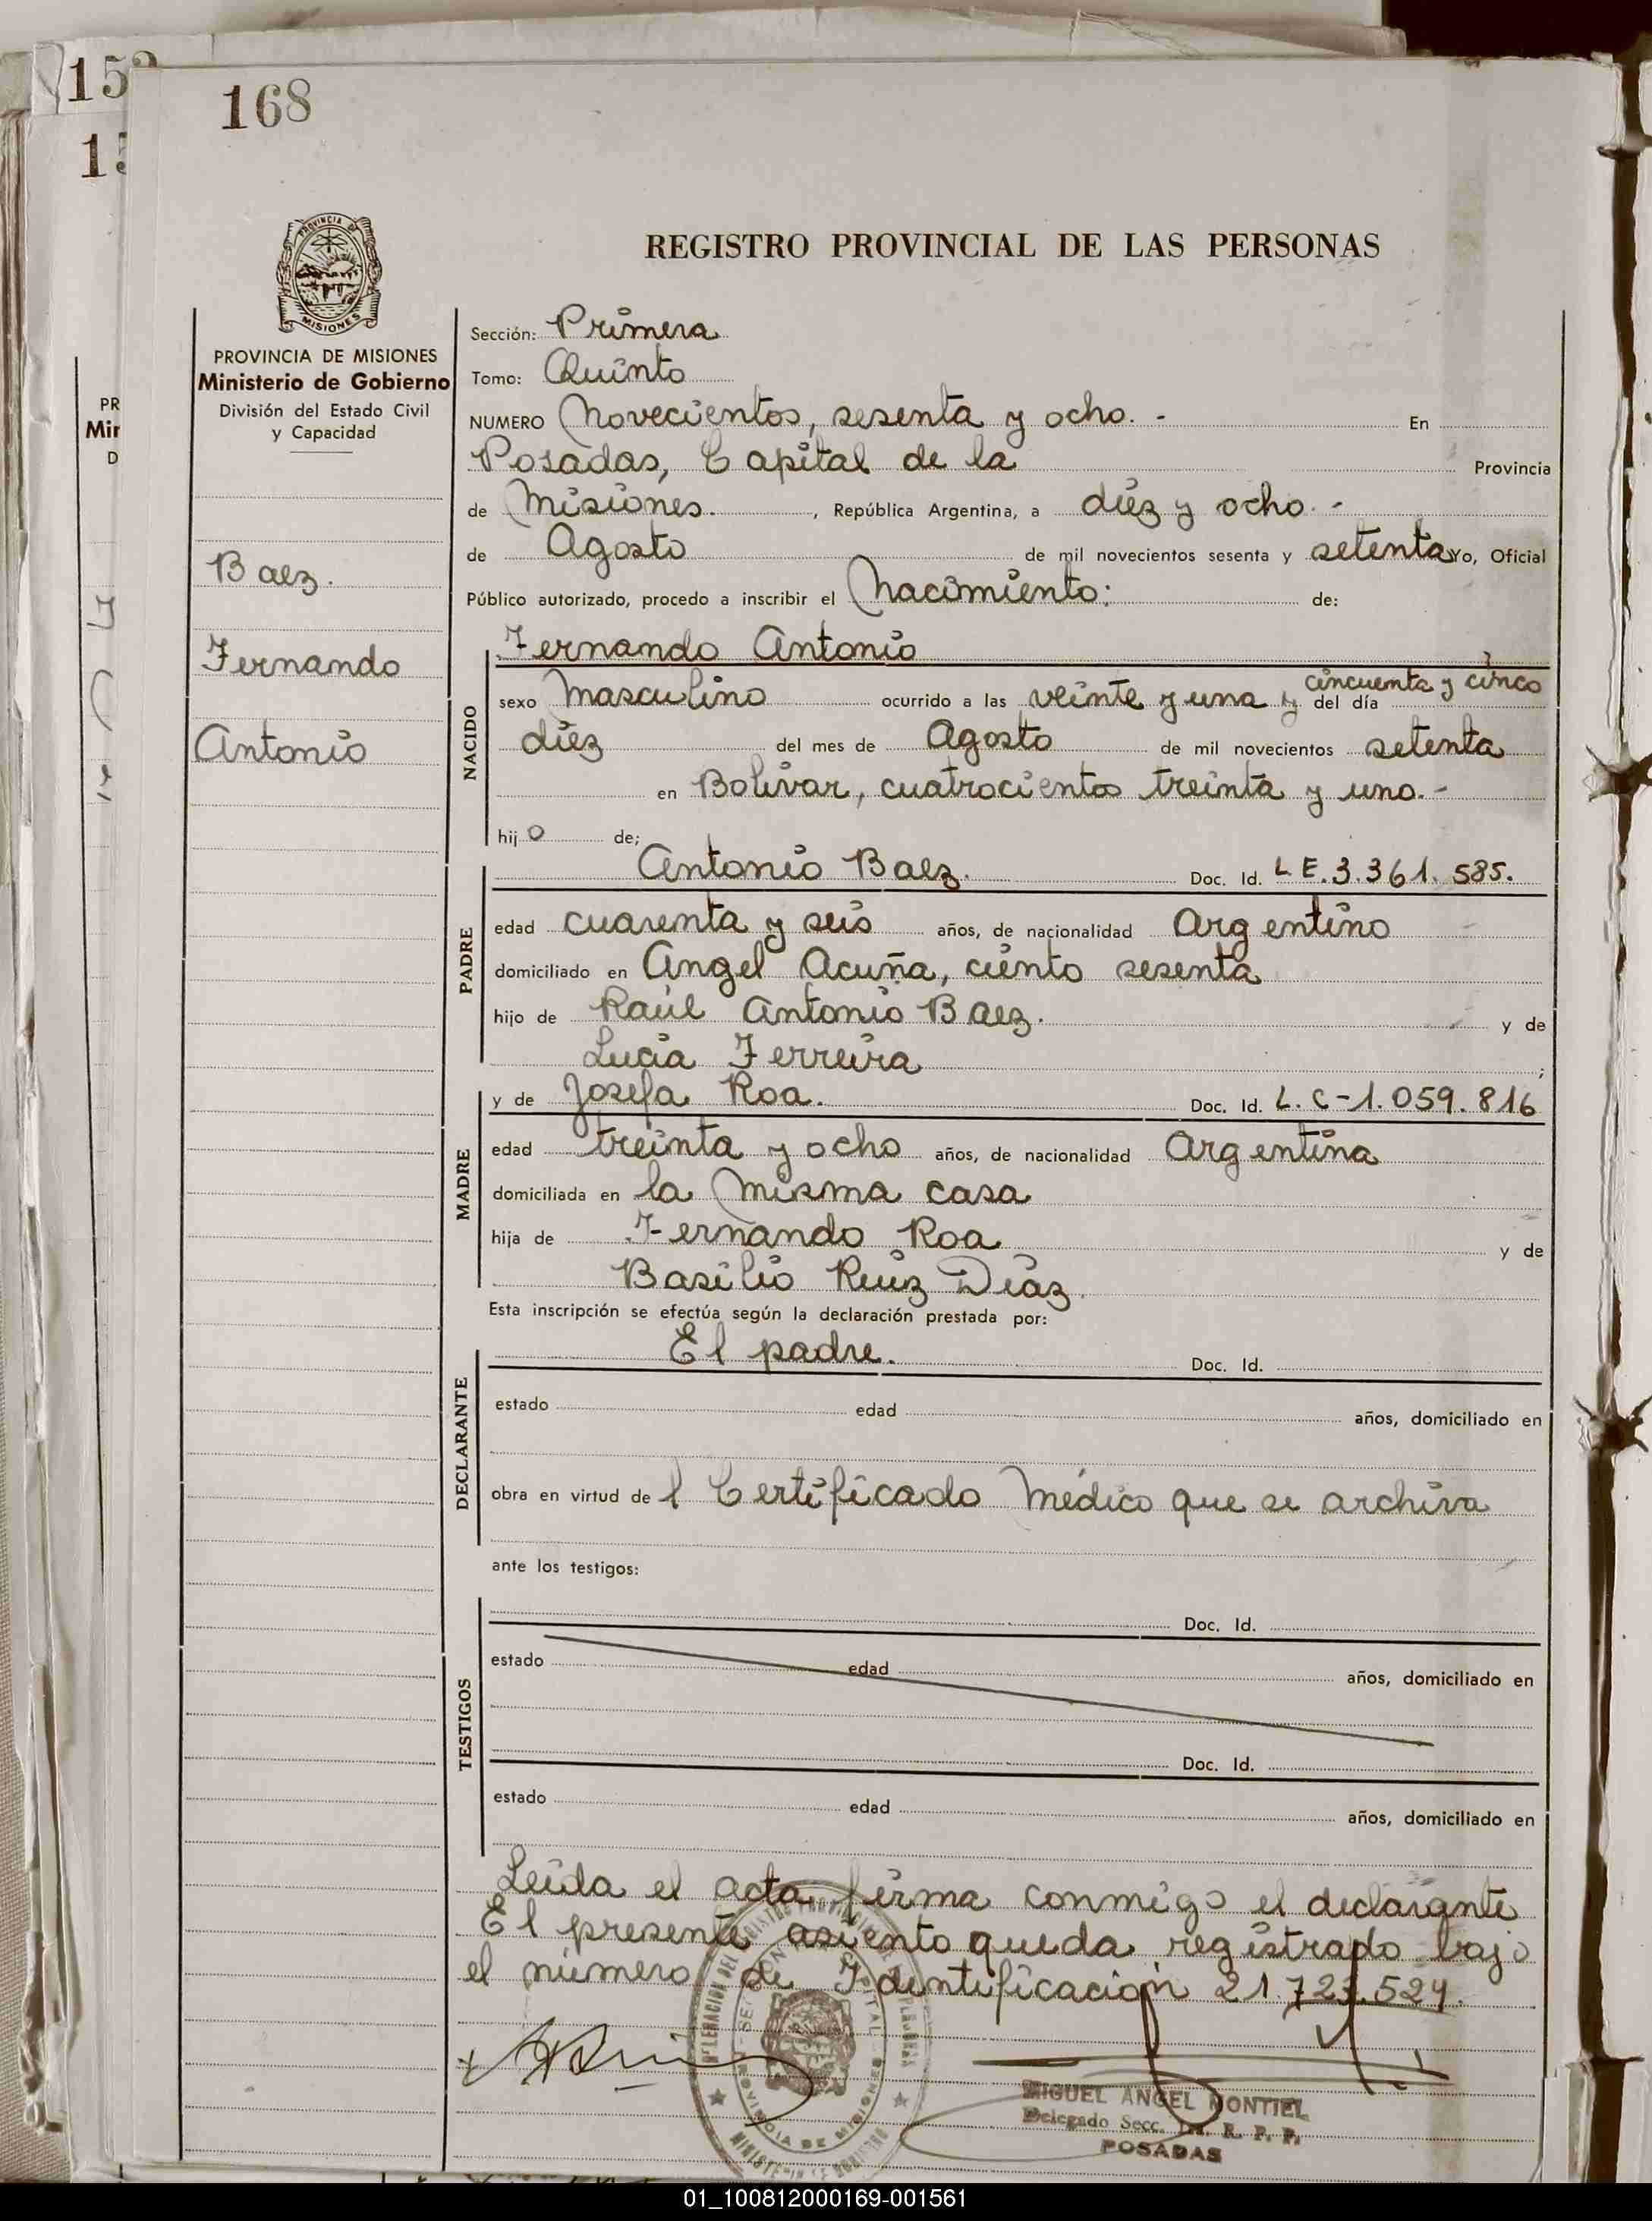 153
15
168
PROVINCIA DE
MISIONES
REGISTRO PROVINCIAL DE LAS PERSONAS
PROVINCIA DE MISIONES
Ministerio de Gobierno
División del Estado Civil
y Capacidad
PR
Mir
D
Baez.
Fernando
Antonio
Sección: Primera
Tomo: Quinto
NUMERO Novecientos, sesenta y ocho. - En
Posadas, Capital de la Provincia
de Misiones. , República Argentina, a diez y ocho. -
de Agosto de mil novecientos sesenta y setenta Yo, Oficial
Público autorizado, procedo a inscribir el Nacimiento: de:
Fernando Antonio
NACIDO
cincuenta y cinco
sexo Masculino ocurrido a las veinte y una y del día
diez del mes de Agosto de mil novecientos setenta
en Bolivar, cuatrocientos treinta y uno. -
hijo de;
Antonio Baez. Doc. Id. L E. 3.361.585.
PADRE
edad cuarenta y seis años, de nacionalidad Argentino
domiciliado en Angel Acuña, ciento sesenta
hijo de Raúl Antonio Baez. y de
Lucia Ferreira ;
y de Josefa Roa. Doc. Id. L. C-1.059.816
MADRE
edad treinta y ocho años, de nacionalidad Argentina
domiciliada en la misma casa
hija de Fernando Roa y de
Basilio Ruiz Diaz.
Esta inscripción se efectúa según la declaración prestada por:
El padre. Doc. Id.
DECLARANTE
estado edad años, domiciliado en
obra en virtud del Certificado Médico que se archiva
ante los testigos:
Doc. Id.
TESTIGOS
estado edad años, domiciliado en
Doc. Id.
estado edad años, domiciliado en
Leida el acta firma conmigo el declarante
El presente asiento queda registrado bajo
el número de Identificación 21.723.524.
PROVINCIA DE MISIONES
MIGUEL ANGEL MONTIEL
Delegado Secc. 1a. R. P. P.
POSADAS
01_100812000169-001561